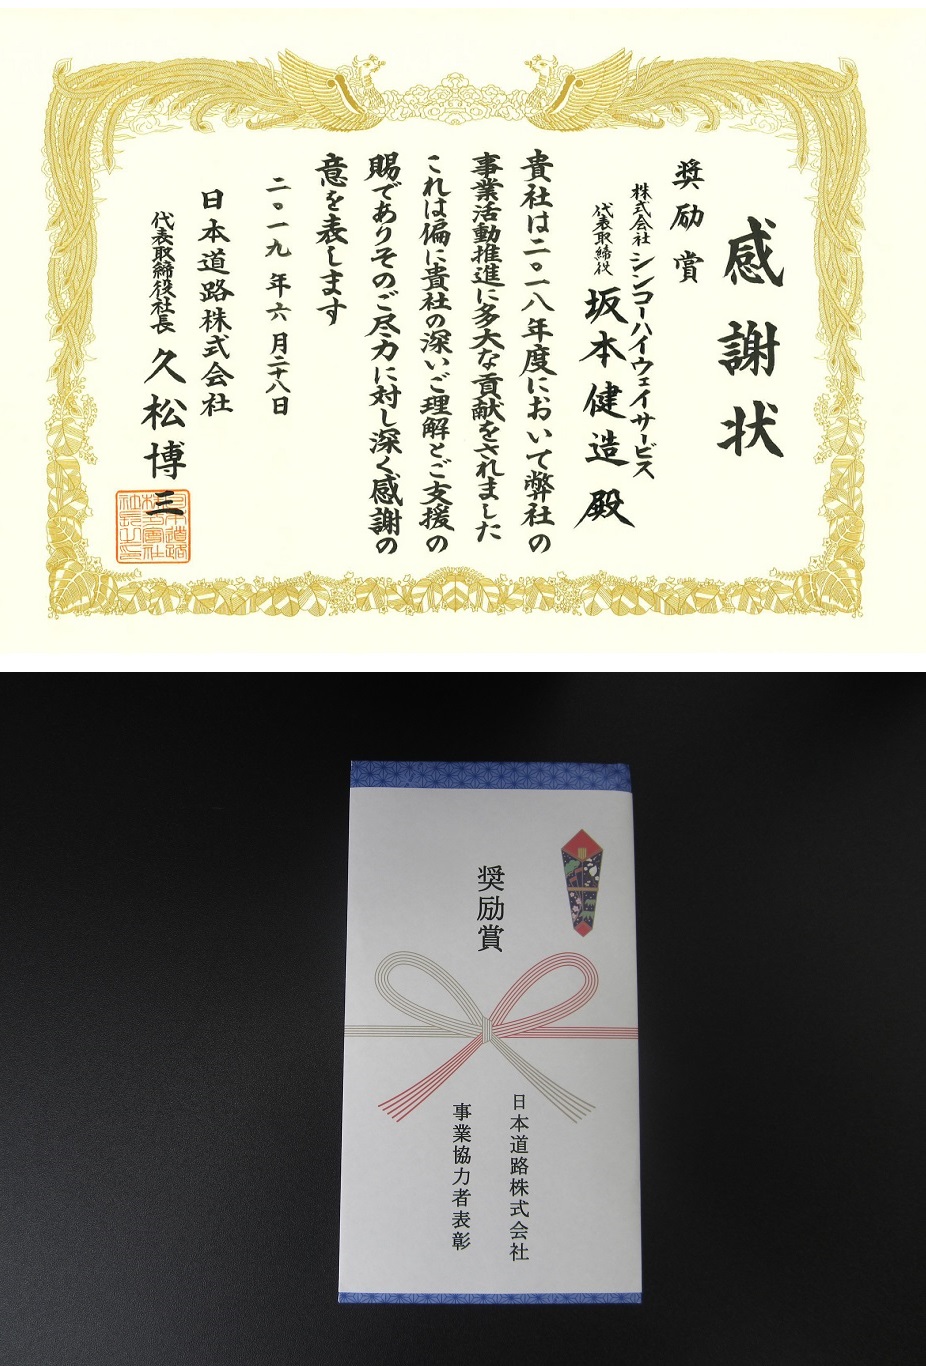 感謝状
奨励賞
株式会社 シンコーハイウェイサービス
代表取締役 坂本健造 殿
貴社は二〇一八年度において弊社の
事業活動推進に多大な貢献をされました
これは偏に貴社の深いご理解とご支援の
賜でありそのご尽力に対し深く感謝の
意を表します
二〇一九年六月二十八日
日本道路株式会社
代表取締役社長 久松博三
奨励賞
日本道路株式会社
事業協力者表彰